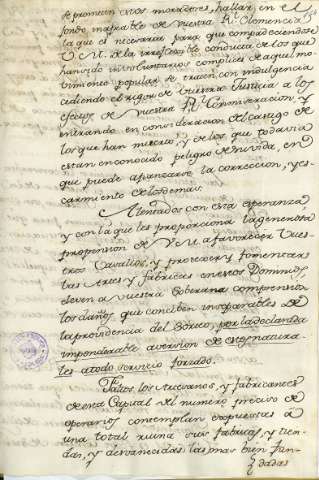 se prometen estos moradores, hallar, en el
fondo inapeable de vuestra Rl. Clemencia,
la que es necesaria para que compadeciendose
V. M. de la irreflexible conducta de los que
han sido involuntarios complices de aquel mo-
vimiento popular se traten con indulgencia
cediendo el rigor de vuestra Justicia a los
efectos de vuestra Rl. Conmiseración, y
entrando en consideracion del castigo de
los que han muerto, y de los que todavia
están en conocido peligro de su vida, en
que puede afianzarse la correccion, y es-
carmiento de los demas.
Alentados con esta esperanza
y con la que les proporciona la generosa
propension de V. M. a favorecer vues-
tros Vasallos, y proteger y fomentar
las Artes, y fabricas en estos Dominios,
eleven a vuestra Soberana comprension
los daños, que conciben inseparables de
la providencia del Sorteo, por la declarada
imponderable aversion de estos natura-
les a todo servicio forzado.
Faltos los Artesanos, y fabricantes
de esta Capital del numero preciso de
operarios contemplan expuestas a
una total ruina sus fabricas, y tien-
das, y desvanecidas las mas bien fun-
dadas